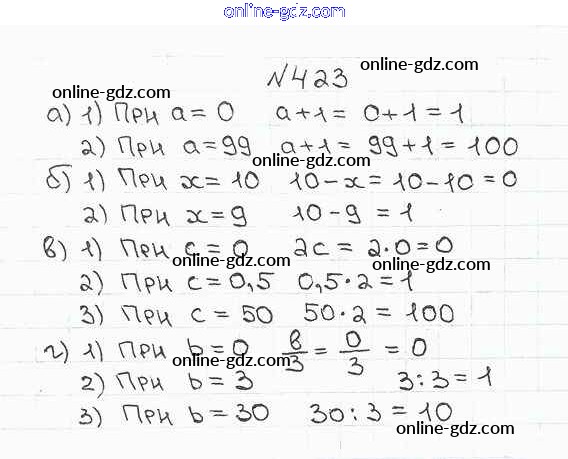 online-gdz.com
№423 online-gdz.com
online-gdz.com
а) 1) При a = 0 a+1 = 0+1 = 1
2) При a=99 a+1 = 99+1 = 100
online-gdz.com
б) 1) При x = 10 10-x = 10-10 = 0
online-gdz.com
2) При x = 9 10-9 = 1
в) 1) При c = 0 2c = 2·0=0
online-gdz.com online-gdz.com
2) При c = 0,5 0,5·2 = 1
3) При c = 50 50·2 = 100
г) 1) При b = 0 b/3 = 0/3 = 0
online-gdz.com
2) При b = 3 3:3 = 1
3) При b = 30 30:3 = 10
online-gdz.com